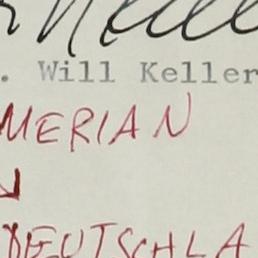 . Will Keller
MERIAN
DEUTSCHLA